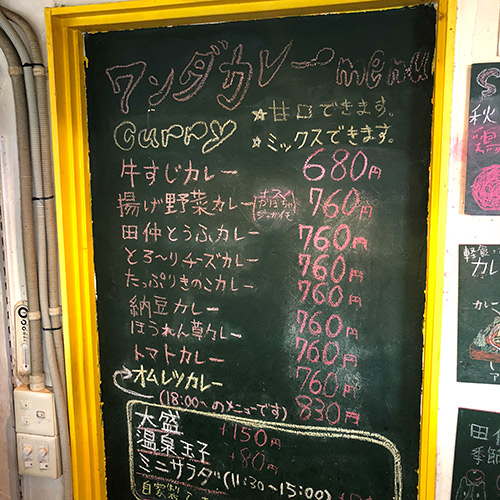 ワンダカレー menu
★甘口できます。
curry ★ミックスできます。
牛すじカレー 680円
揚げ野菜カレー 760円
田仲とうふカレー 760円
とろ〜りチーズカレー 760円
たっぷりきのこカレー 760円
納豆カレー 760円
ほうれん草カレー 760円
トマトカレー 760円
オムレツカレー 830円
(18:00〜のメニューです)
大盛 +150円
温泉玉子 +80円
ミニサラダ(11:30〜15:00)
自家製
秋
軽食
カレ
田仲
季節